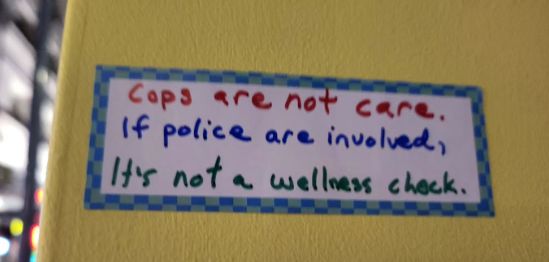 Cops are not care.
If police are involved,
It's not a wellness check.